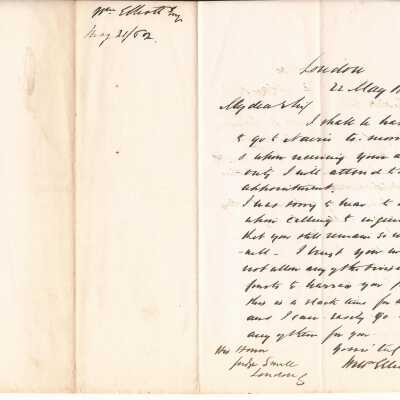 Wm Elliott Esq
May 21/52
London
22 May 18
My dear Sir
I shall be hap
to go to
& upon receiving your a
-ority I will attend to
appointment.
I was sorry to hear to d
when calling to
that you still remain so un
-well - I trust you w
not allow any of the
to harrass you
this is a slack time for
and I can easily go
any of them for you
Yours tr
Wm Elli
His Honor
Judge Small
London